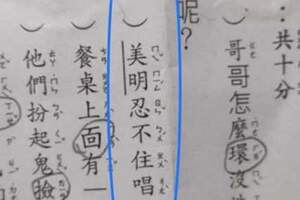 ：共十分
哥哥怎麼環沒
呢？
美明忍不住唱
餐桌上面有一
他們扮起鬼臉